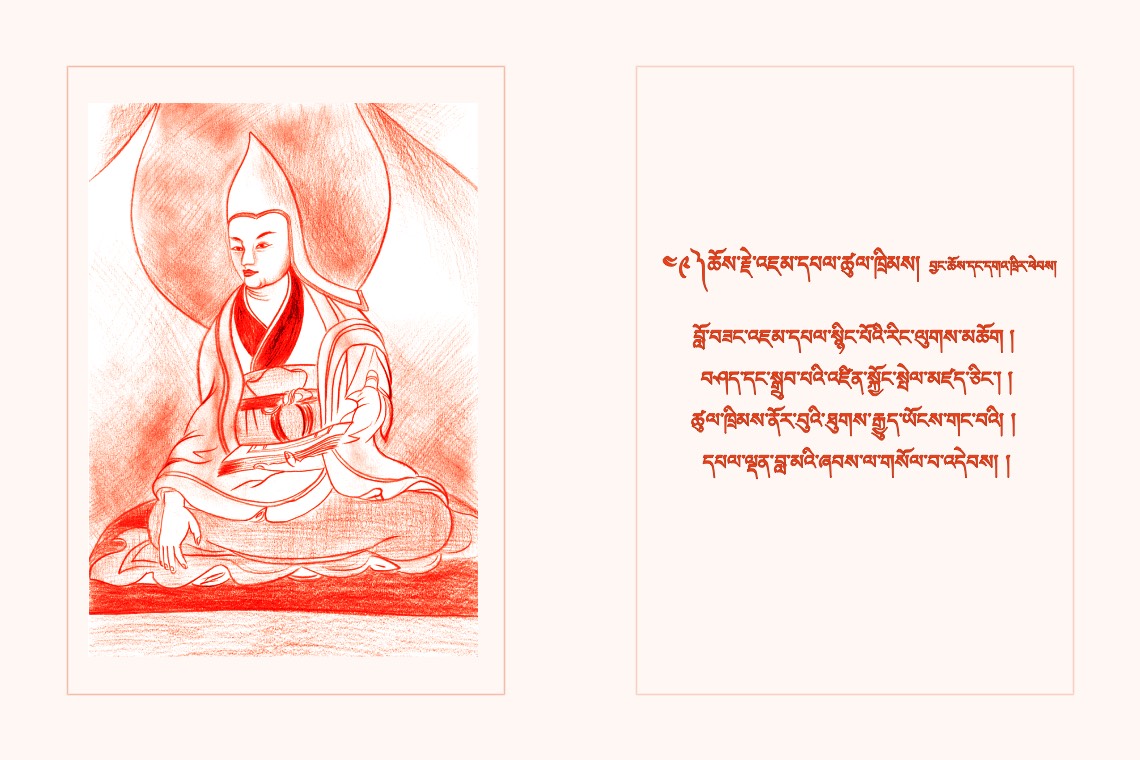 ༤༩ ༽ ཆོས་རྗེ་འཇམ་དཔལ་ཚུལ་ཁྲིམས། བྱང་ཆོས་དང་དགའ་ཁྲིར་ཕེབས།
བློ་བཟང་འཇམ་དཔལ་སྙིང་པོའི་རིང་ལུགས་མཆོག །
བཤད་དང་སྒྲུབ་པའི་འཛིན་སྐྱོང་སྤེལ་མཛད་ཅིང་། །
ཚུལ་ཁྲིམས་ནོར་བུའི་ཐུགས་རྒྱུད་ཡོངས་གང་བའི། །
དཔལ་ལྡན་བླ་མའི་ཞབས་ལ་གསོལ་བ་འདེབས། །